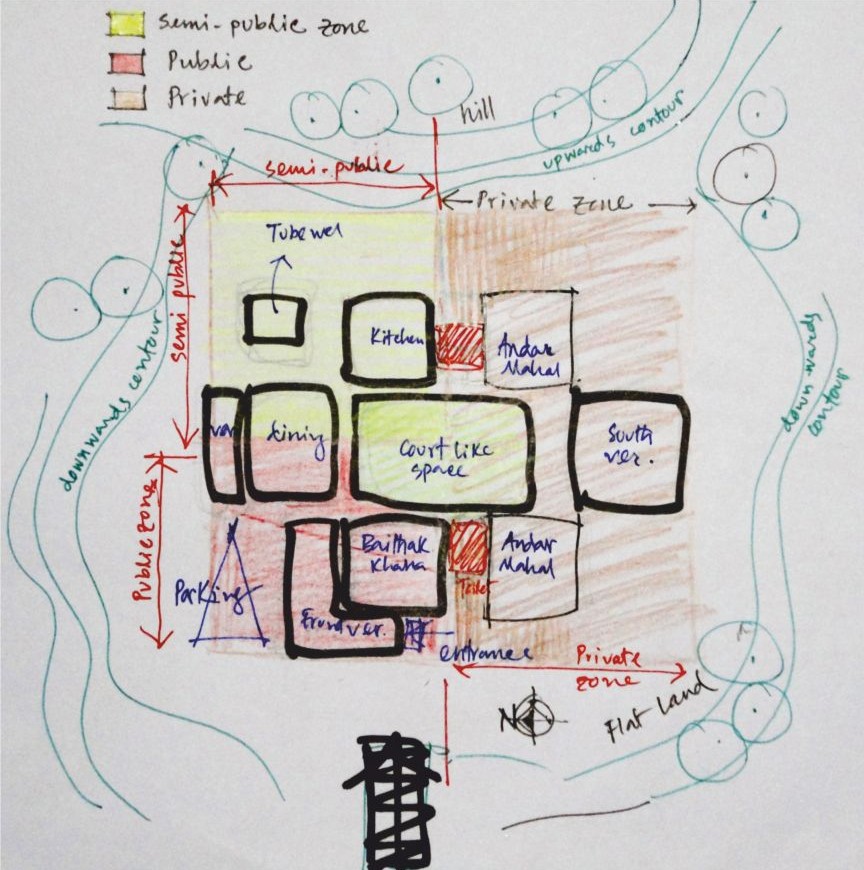 semi-public zone
Public
Private
hill
upwards contour
semi-public
Private zone
Tubewel
semi public
downwards contour
Kitchen
Andar
Mahal
downwards
contour
ver
dining
Court like
space
South
ver.
Public zone
Baithak
khana
Andar
Mahal
Toilet
Parking
Front ver.
entrance
Private
zone
N
Flat Land